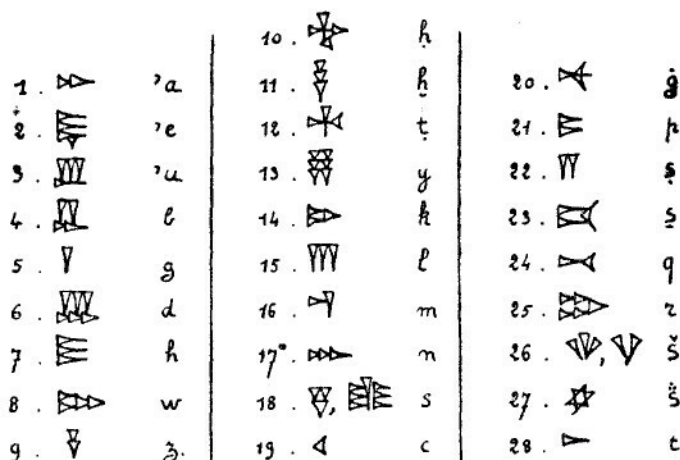 1 . 𐎀 ʾa
2 . 𐎛 ʾe
3 . 𐎜 ʾu
4 . 𐎁 b
5 . 𐎂 g
6 . 𐎄 d
7 . 𐎅 h
8 . 𐎆 w
9 . 𐎇 z.
10 . 𐎈 ḥ
11 . 𐎃 ḫ
12 . 𐎉 ṭ
13 . 𐎊 y
14 . 𐎋 k
15 . 𐎍 l
16 . 𐎎 m
17 . 𐎐 n
18 . 𐎒, 𐎝 s
19 . 𐎓 c
20 . 𐎙 ġ
21 . 𐎔 p
22 . 𐎕 ṣ
23 . 𐎑 s̱
24 . 𐎖 q
25 . 𐎗 r
26 . 𐎌, 𐎌 š
27 . 𐎘 s̈
28 . 𐎚 t